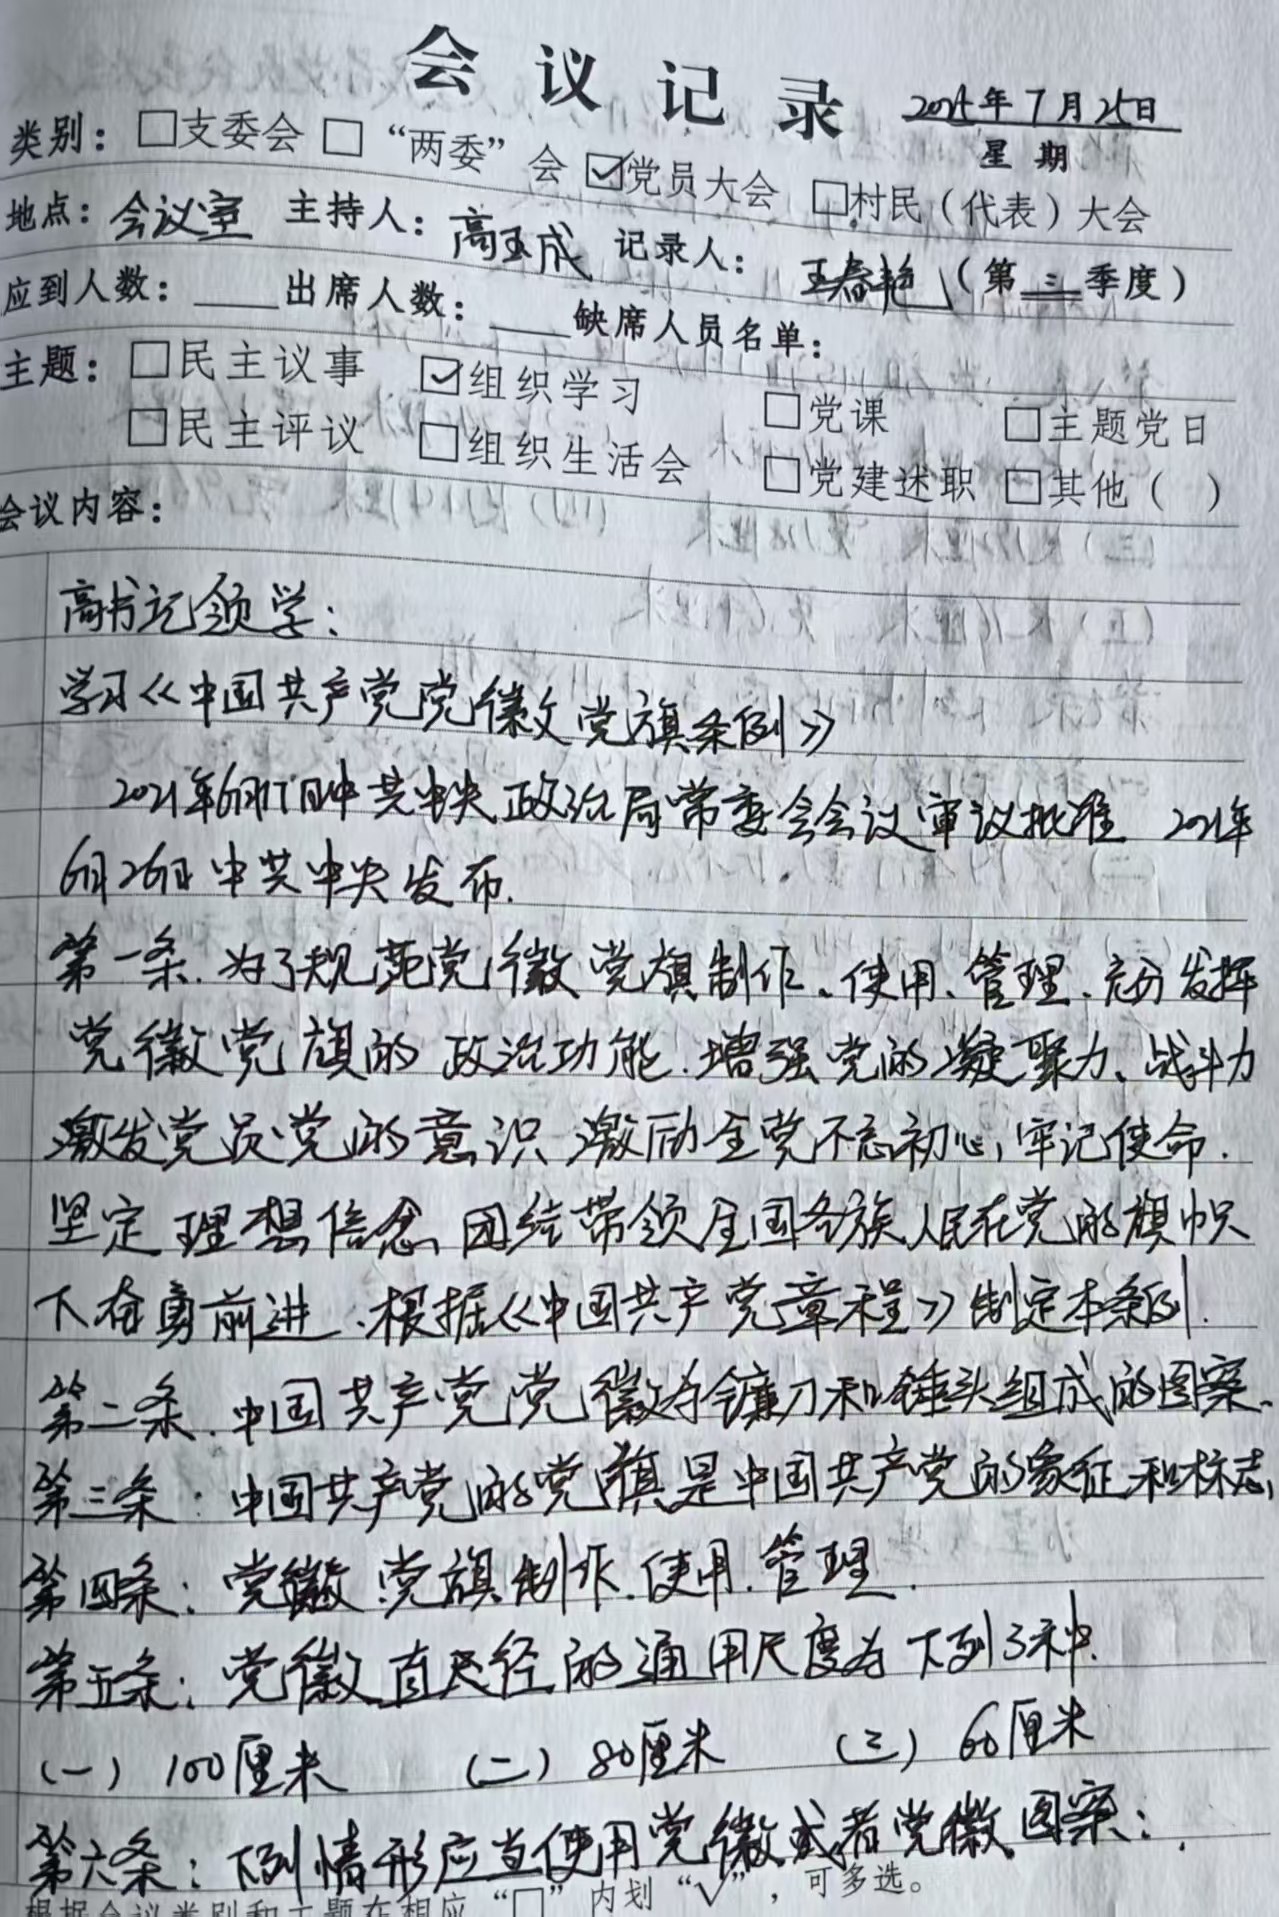 会议记录 2024年7月25日
星期
类别：□支委会 □“两委”会 ☑党员大会 □村民（代表）大会
地点：会议室 主持人：高玉成 记录人：王春艳（第三季度）
应到人数：____出席人数：____缺席人员名单：
主题：□民主议事 ☑组织学习 □党课 □主题党日
□民主评议 □组织生活会 □党建述职 □其他（ ）
会议内容：
高书记领学：
学习《中国共产党党徽党旗条例》
2021年6月17日中共中央政治局常委会会议审议批准 2021年
6月26日中共中央发布.
第一条.为了规范党徽党旗制作、使用、管理.充分发挥
党徽党旗的政治功能.增强党的凝聚力、战斗力
激发党员党的意识 激励全党不忘初心,牢记使命.
坚定理想信念、团结带领全国各族人民在党的旗帜
下奋勇前进.根据《中国共产党章程》制定本条例.
第二条.中国共产党党徽为镰刀和锤头组成的图案、
第三条：中国共产党的党旗是中国共产党的象征和标志,
第四条：党徽.党旗制作.使用.管理.
第五条：党徽直径的通用尺度为下列3种.
（一）100厘米 （二）80厘米 （三）60厘米
第六条：下列情形应当使用党徽或者党徽图案：
根据会议类别和主题在相应“□”内划“√”，可多选。